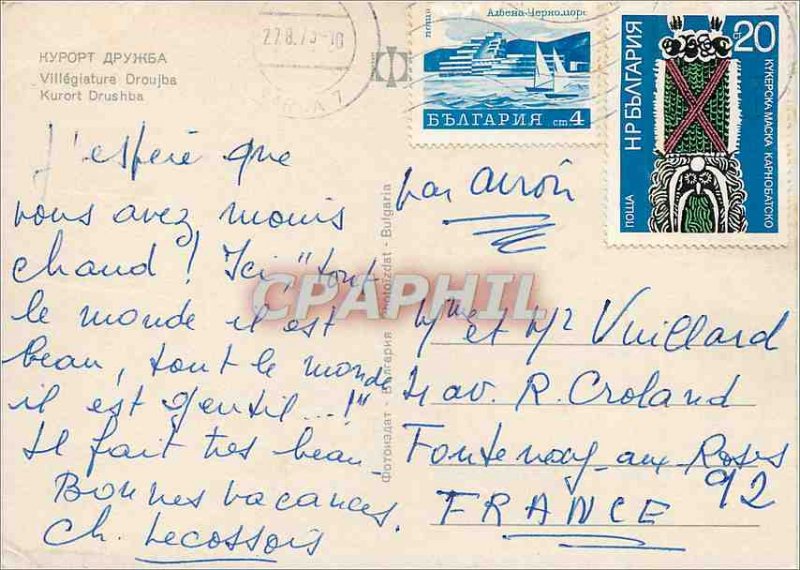 КУРОРТ ДРУЖБА
Villégiature Droujba
Kurort Drushba
27.8.73-10
поща
Албена-Черноморе
БЪЛГАРИЯ ст. 4
20 ст
НР БЪЛГАРИЯ
КУКЕРСКА МАСКА КАРНОБАТСКО
ПОЩА
J'espère que
vous avez moins
chaud ! Ici, "tout
le monde il est
beau, tout le monde
il est gentil...!"
Il fait très beau.
Bonnes vacances.
Ch. Lecossois
Фотоиздат - България - Photoizdat - Bulgaria
CPAPHIL
par avion
Mme et Mr Vuillard
av. R. Croland
Fontenay-aux-Roses
92
FRANCE